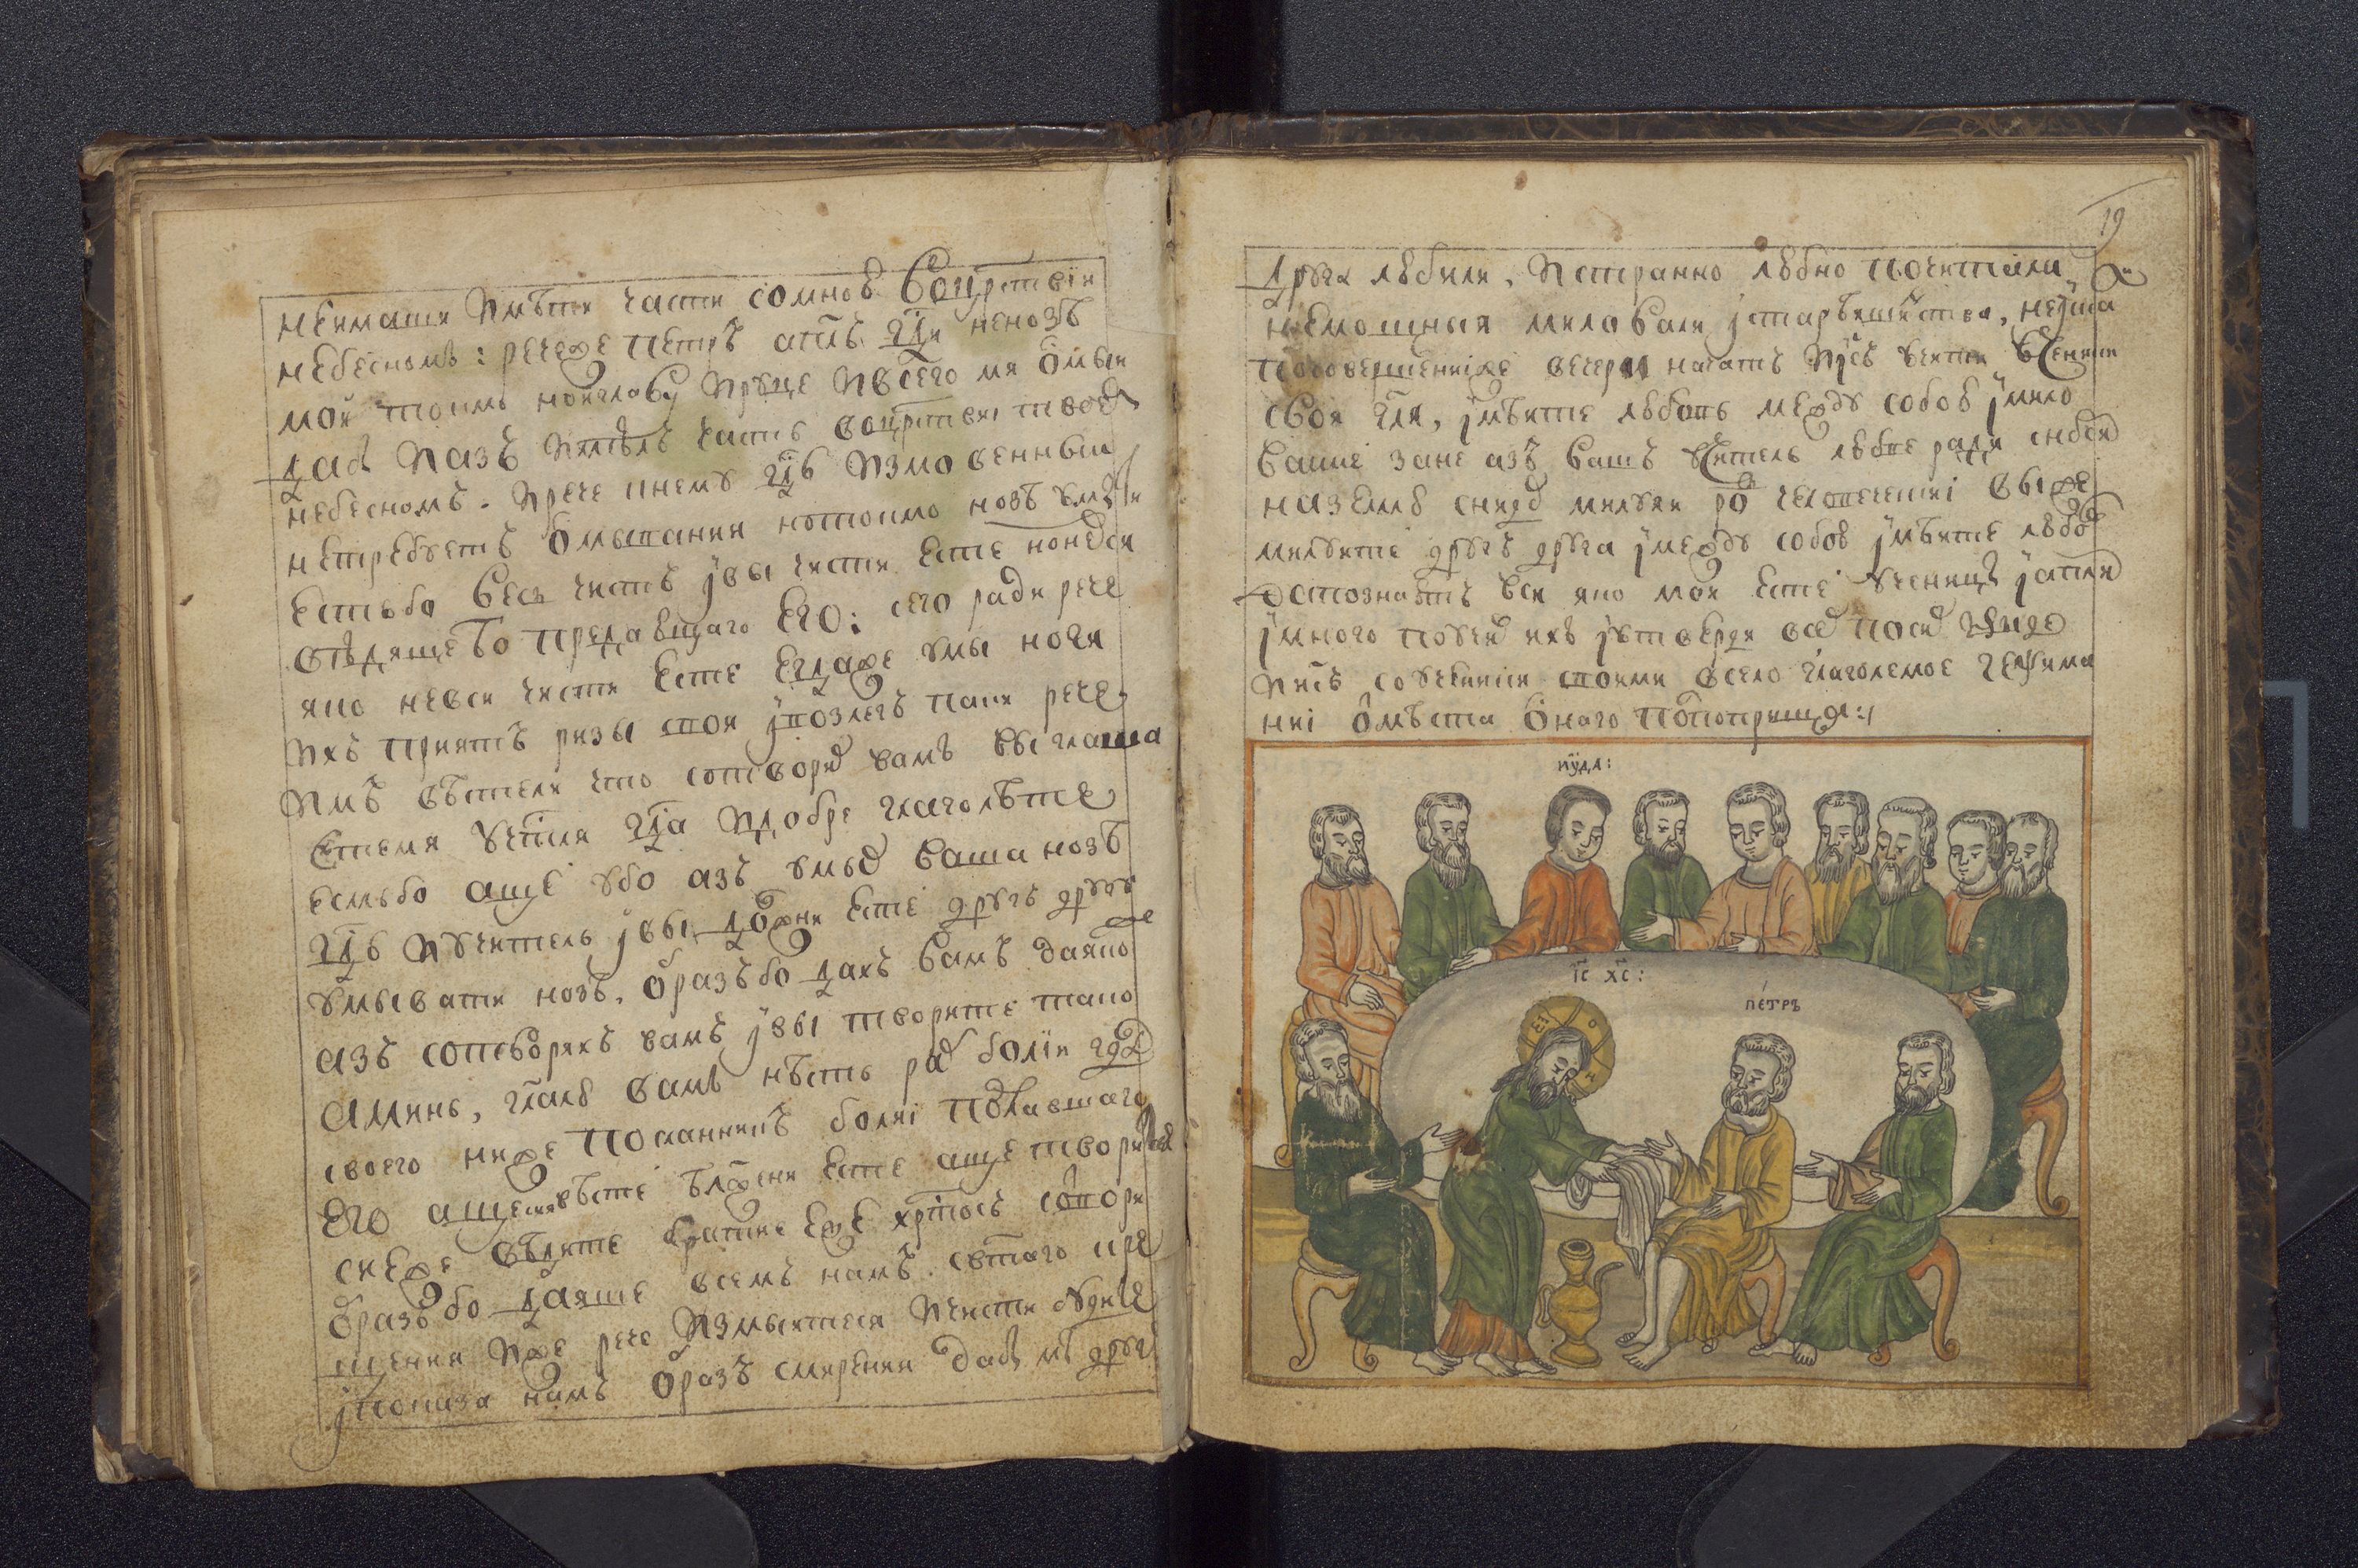 не имаши имѣти части сомною воцр҃тви
небесномъ: речеже петръ ап҃лъ гд҇и ненозѣ
мои токмо ноиглаву ируце ивсего мя ѡмыи
дабы иазъ имѣлъ часть воцр҃твіи твоем
небесномъ. ирече кнему гд҇ь измовенныи
нетребуетъ ѡмывания нотокмо нозѣ умыти
естьбо весь чистъ івы чисти есте нонеѵси
вѣдящебо предавшаго его: сего ради рече
яко невси чисти есте егдаже умы ноги
ихъ приятъ ризы своя івозлегъ паки рече
имъ вѣстели что сотворих вамъ вы глаша
етемя учт҃ля гд҇а идобре глаголѣте
есмьбо аще убо азъ умых ваша нозѣ
гд҇ь иучитель івы должни есте другъ другу
умывати нозѣ. образъбо дахъ вамъ даяко
азъ сотворихъ вамъ івы творите тако
аминь, гл҃аю вамъ нѣсть раб болии гд҇а
своего ниже посланникъ болиі пославшаго
его аще сиявѣсте бл҃жени есте аще творите
сиеже видите братие еже хр҃тосъ сотвори
образъбо даяше всемъ намъ. свт҃аго кре
щения иже рече измыитеся ичисти будите
іпоказа намъ образъ смирения дабы мы другъ
19
друга любили, истранно любно почитали
немощныя миловали істарѣишинства, неіска
посовершениіже вечери начатъ іи҃съ учити ученики
своя гл҃я, імѣите любовь между собою імило
вание зане азъ вашъ учитель любве ради снебси
наземлю снидох милуяи род человеческиі выже
милуите другъ друга імежду собою імѣите любовь
дапознаютъ вси яко мои есте ученицы іапли
імного поучив ихъ іутверди всех посем изыде
ии҃съ соученики своими всело глаголемое геѳсима
ниі ѡмѣста ѡнаго пополоприща:/
иуда:
і҃с х҃с:
ѡ
н
петръ